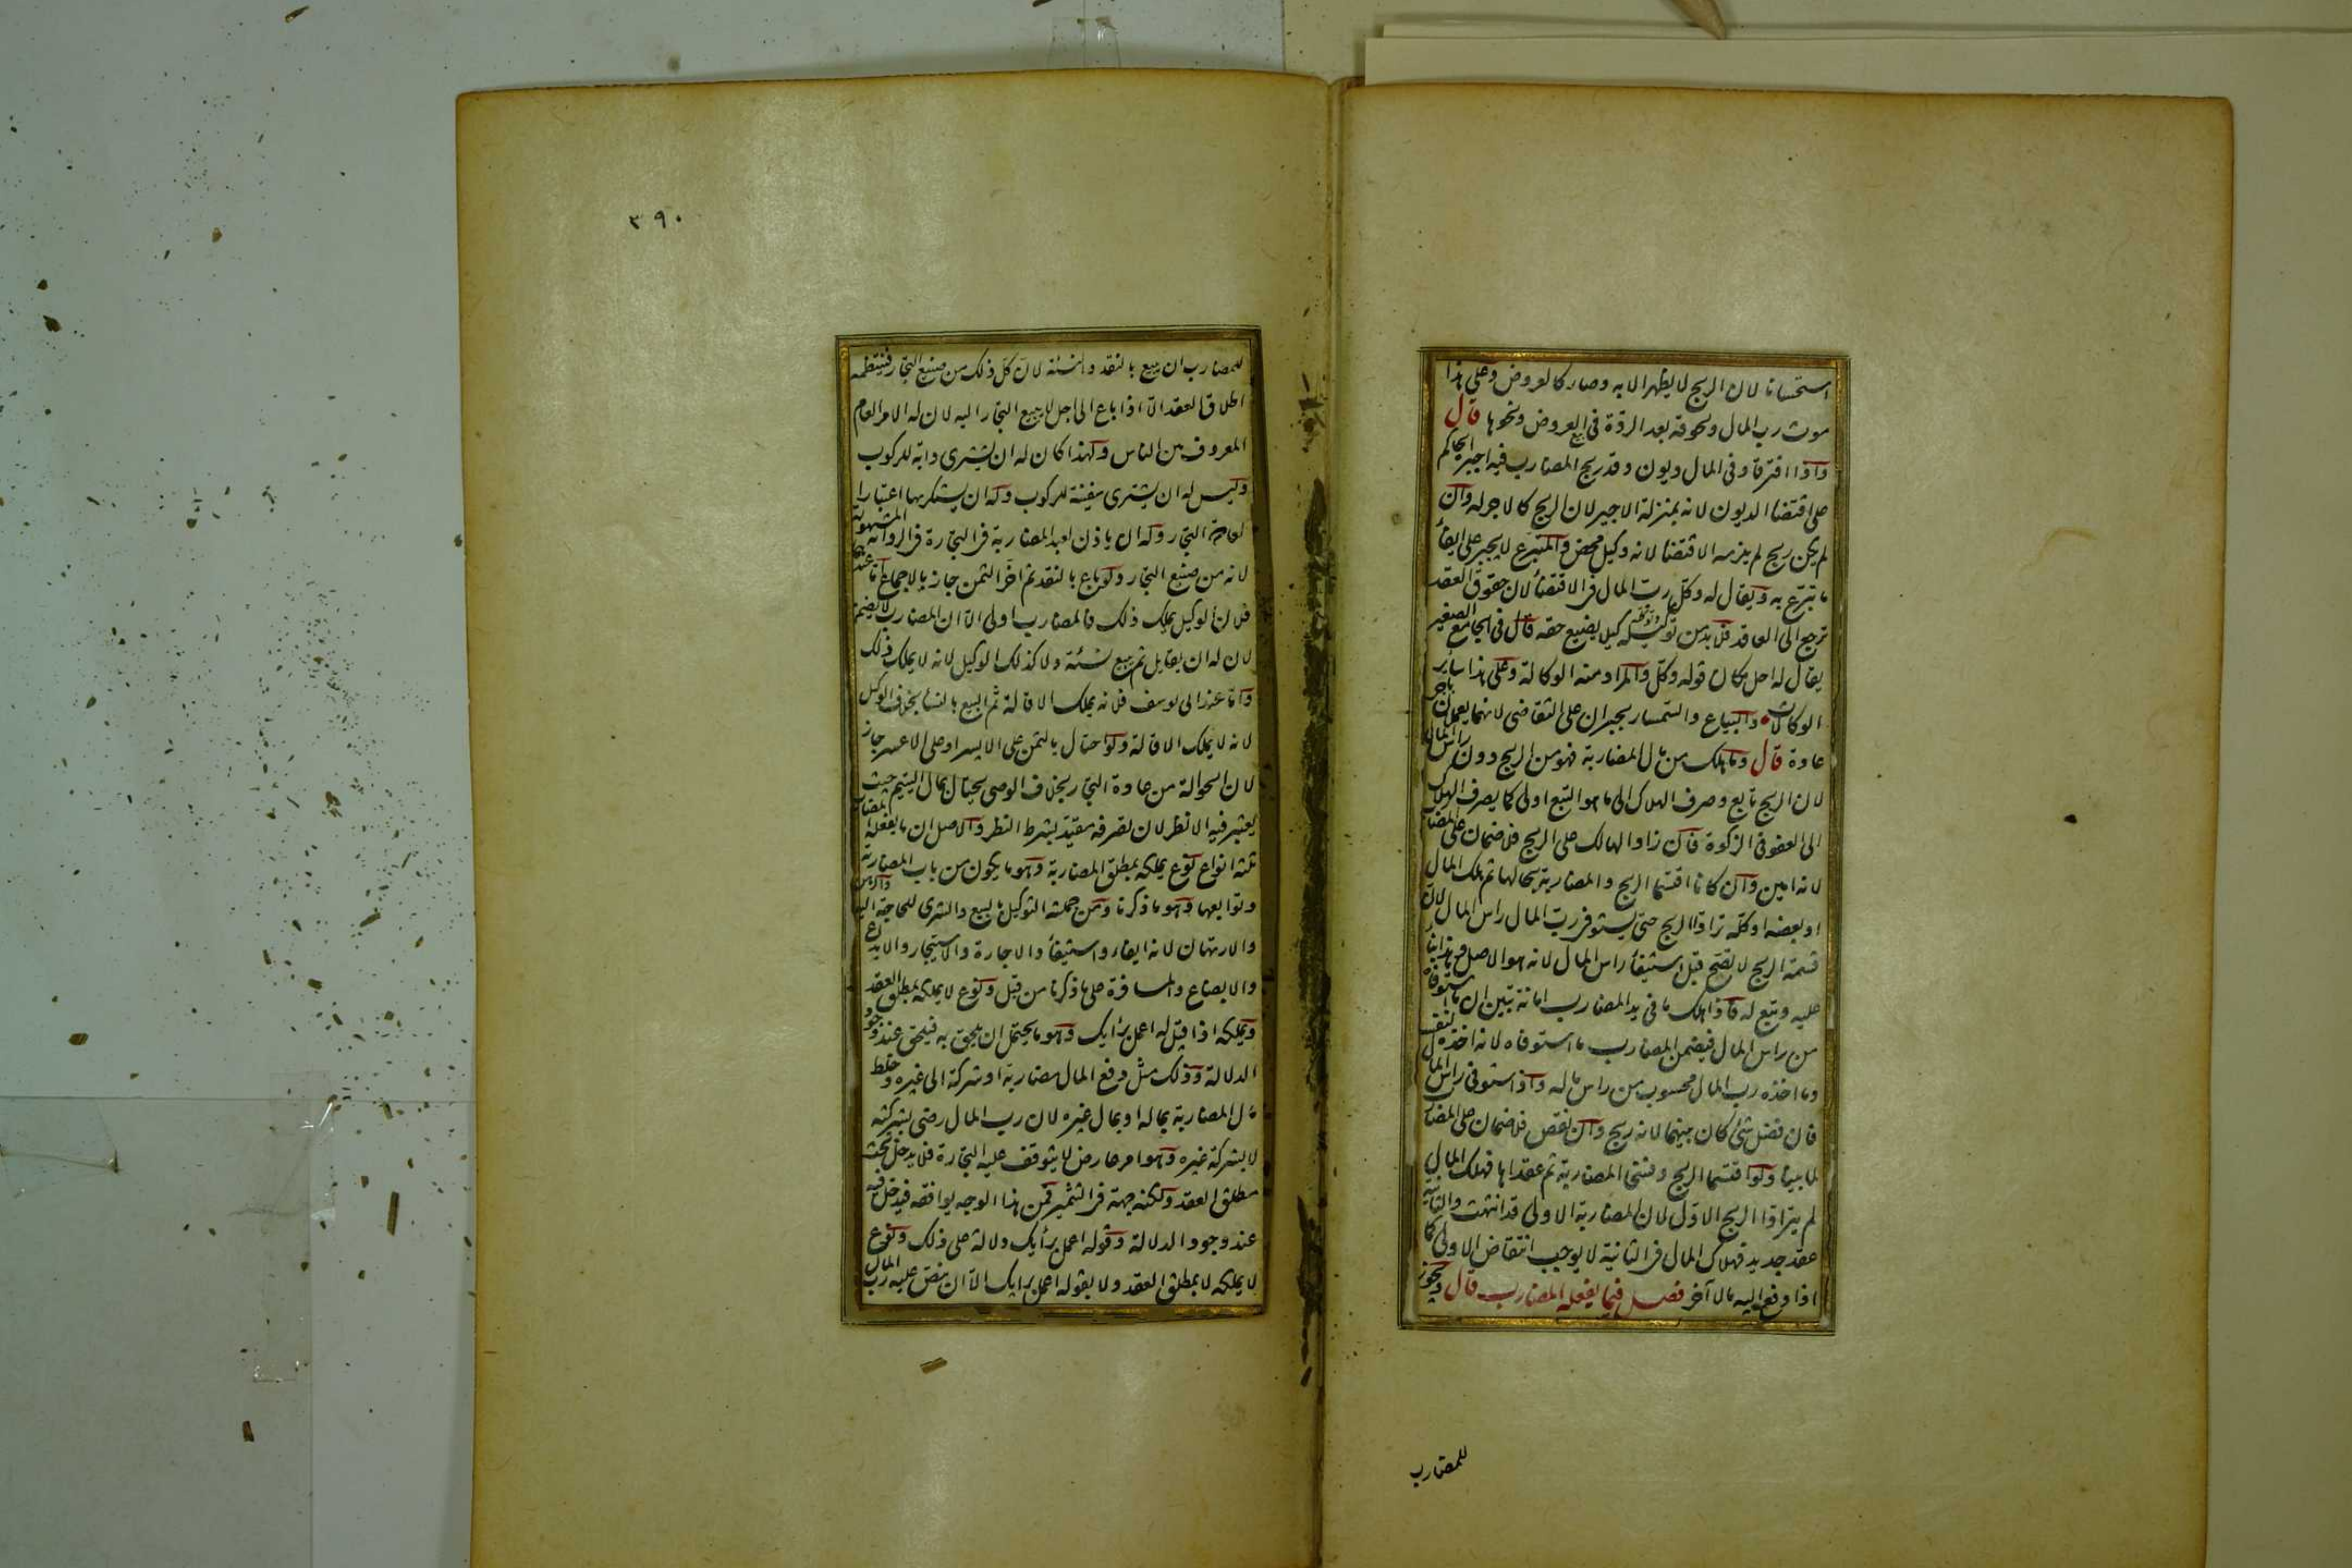 استحسانا لان الربح لا يظهر الا به وصار كالعروض وعلى هذا
موت رب المال ولحوقه بعد الردة فى بيع العروض ونحوها قال
واذا افترقا وفى المال ديون وقد ربح المضارب فيه اجبره الحاكم
على اقتضا الديون لانه بمنزلة الاجير لان الربح كالاجر له وان
لم يكن ربح لم يلزمه الاقتضا لانه وكيل محض والمتبرع لا يجبر على ايفاء
ما تبرع به ويقال له وكل رب المال فى الاقتضاء لان حقوق العقد
ترجع الى العاقد فلا بد من توكيله كيلا يضيع حقه قال فى الجامع الصغير
يقال له احل مكان قوله وكل والمراد منه الوكالة وعلى هذا سائر
الوكالات والبياع والسمسار يجبران على التقاضى لانهما يعملان باجر
عادة قال وما هلك من مال المضاربة فهو من الربح دون راس المال
لان الربح تابع وصرف الهلاك الى ما هو التبع اولى كما يصرف الهلاك
الى العفو فى الزكوة فان زاد الهالك على الربح فلا ضمان على المضارب
لانه امين وان كانا اقتسما الربح والمضاربة بحالها ثم هلك المال
او بعضه او كله ترادا الربح حتى يستوفى رب المال راس المال لان
قسمة الربح لا تصح قبل استيفاء راس المال لانه هو الاصل وهذا بناء
عليه وتبع له فاذا هلك ما فى يد المضارب امانة تبين ان ما استوفاه
من راس المال فيضمن المضارب ما استوفاه لانه اخذه لنفسه
وما اخذه رب المال محسوب من راس ماله واذا استوفى راس المال
فان فضل شئ كان بينهما لانه ربح وان نقص فلا ضمان على المضارب
لما بينا ولو اقتسما الربح وفسخا المضاربة ثم عقداها فهلك المال
لم يترادا الربح الاول لان المضاربة الاولى قد انتهت والثانية
عقد جديد فهلاك المال فى الثانية لا يوجب انتقاض الاولى كما
اذا دفع اليه مالا آخر فصل فيما يفعله المضارب قال ويجوز
للمضارب
٣٩٠
للمضارب ان يبيع بالنقد والنسئة لان كل ذلك من صنيع التجار فينتظمه
اطلاق العقد الا اذا باع الى اجل لا يبيع التجار اليه لان له الامر العام
المعروف بين الناس ولهذا كان له ان يشترى دابة للركوب
وليس له ان يشترى سفينة للركوب وله ان يستكريها اعتبارا
لعادة التجار وله ان ياذن لعبد المضاربة فى التجارة فى الرواية المشهورة
لانه من صنيع التجار ولو باع بالنقد ثم اخر الثمن جاز بالاجماع اما عندهما
فلان الوكيل يملك ذلك فالمضارب اولى الا ان المضارب لا يضمن
لان له ان يقايل ثم يبيع نسئة ولا كذلك الوكيل لانه لا يملك ذلك
واما عند ابى يوسف فلانه يملك الاقالة ثم البيع بالنساء بخلاف الوكيل
لانه لا يملك الاقالة ولو احتال بالثمن على الايسر او على الاعسر جاز
لان الحوالة من عادة التجار بخلاف الوصى يحتال بمال اليتيم حيث
يعتبر فيه الانظر لان تصرفه مقيد بشرط النظر والاصل ان ما يفعله المضارب
ثلثة انواع نوع يملكه بمطلق المضاربة وهو ما يكون من باب المضاربة
وتوابعها وهو ما ذكرنا ومن جملته التوكيل بالبيع والشرى للحاجة اليه والرهن
والارتهان لانه ايفاء واستيفاء والاجارة والاستيجار والايداع
والابضاع والمسافرة على ما ذكرنا من قبل ونوع لا يملكه بمطلق العقد
ويملكه اذا قيل له اعمل برأيك وهو ما يحتمل ان يلحق به فيلحق عند وجود
الدلالة وذلك مثل دفع المال مضاربة او شركة الى غيره وخلط
مال المضاربة بماله او بمال غيره لان رب المال رضى بشركته
لا بشركة غيره وهو امر عارض لا يتوقف عليه التجارة فلا يدخل تحت
مطلق العقد ولكنه جهة فى التثمير فمن هذا الوجه يوافقه فيدخل فيه
عند وجود الدلالة وقوله اعمل برأيك دلالة على ذلك ونوع
لا يملكه لا بمطلق العقد ولا بقوله اعمل برايك الا ان ينص عليه رب المال